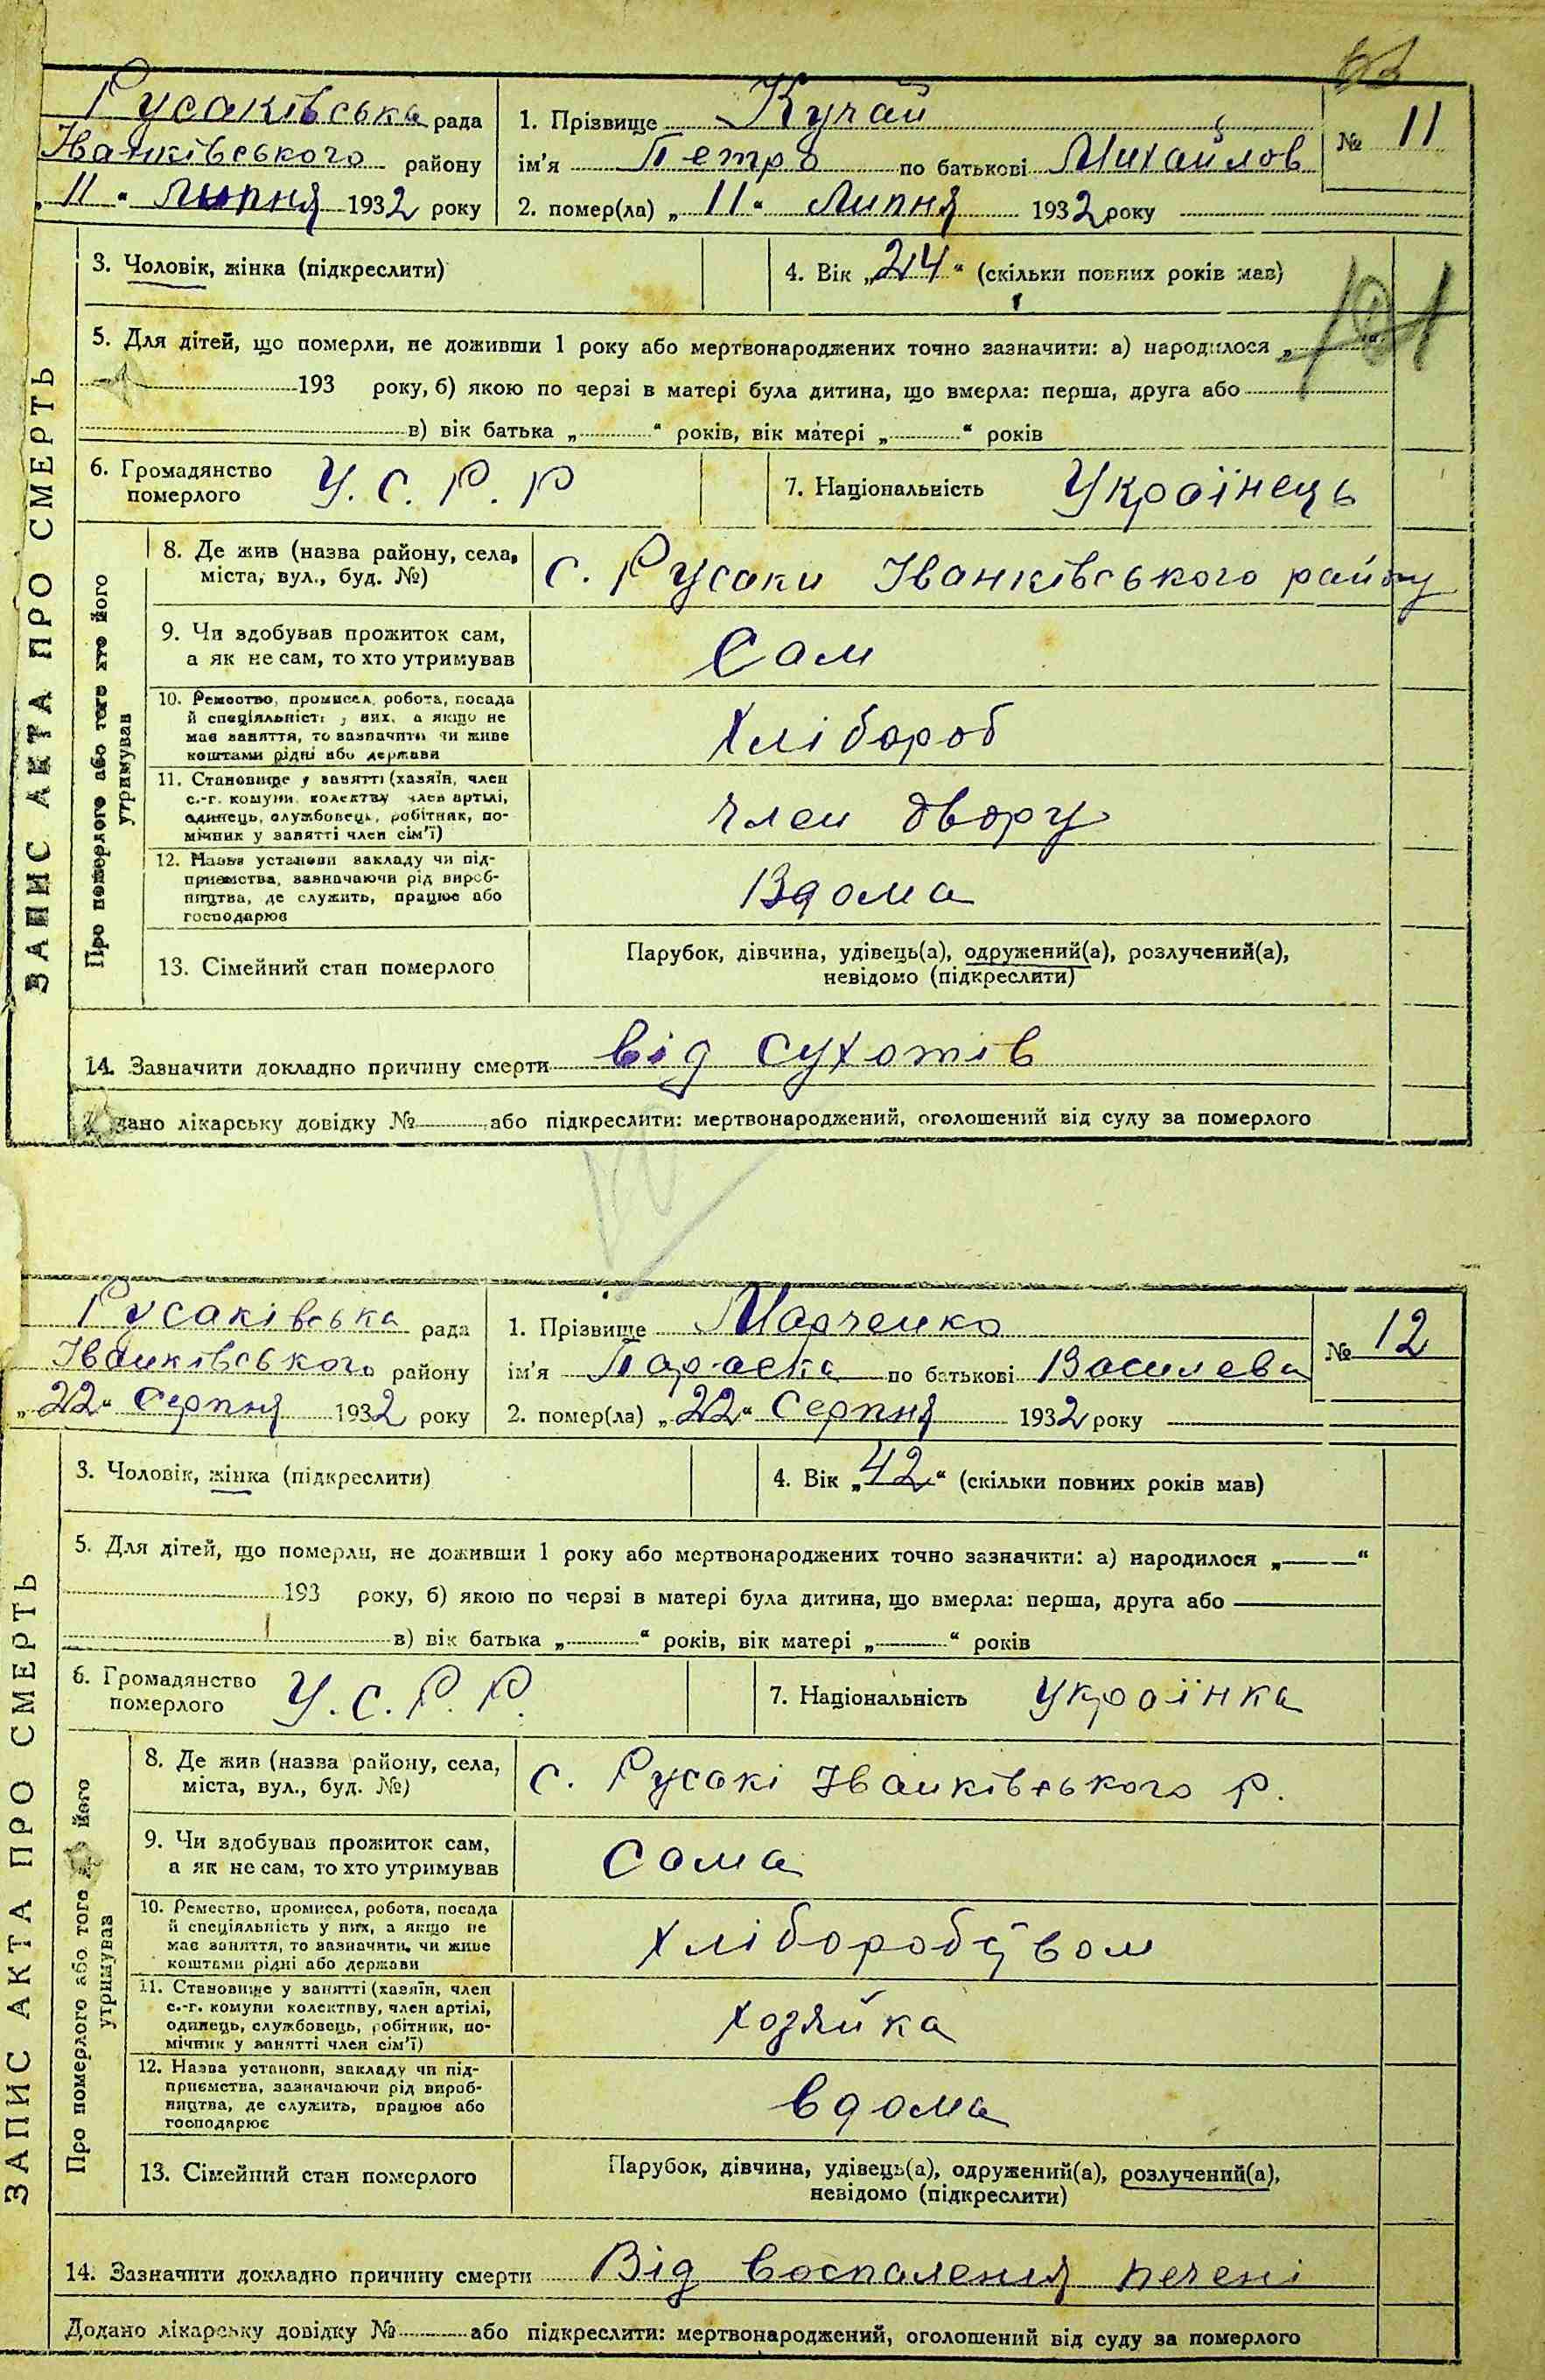 63
Русаківська рада
Іванківського району
„11“ Липня 1932 року
1. Прізвище Кучай
ім'я Петро по батькові Михайлов
2. помер(ла) „11“ Липня 1932 року
№ 11
3. Чоловік, жінка (підкреслити)
4. Вік „24“ (скільки повних років мав)
5. Для дітей, що померли, не доживши 1 року або мертвонароджених точно зазначити: а) народилося „ “
193 року, б) якою по черзі в матері була дитина, що вмерла: перша, друга або
в) вік батька „ “ років, вік матері „ “ років
6. Громадянство
померлого
У. С. Р. Р
7. Національність Українець
ЗАПИС АКТА ПРО СМЕРТЬ
Про померлого або того хто його
утримував
8. Де жив (назва району, села,
міста, вул., буд. №)
с. Русаки Іванківського району
9. Чи здобував прожиток сам,
а як не сам, то хто утримував
Сам
10. Ремество, промисел, робота, посада
й спеціяльність у них, а якщо не
має заняття, то зазначити чи живе
коштами рідні або держави
Хлібороб
11. Становище у занятті (хазяїн, член
с.-г. комуни, колективу член артілі,
одинець, службовець, робітник, по-
мічник у занятті член сім'ї)
член двору
12. Назва установи закладу чи під-
приємства, зазначаючи рід вироб-
ництва, де служить, працює або
господарює
Вдома
13. Сімейний стан померлого
Парубок, дівчина, удівець(а), одружений(а), розлучений(а),
невідомо (підкреслити)
14. Зазначити докладно причину смерти від сухотів
Додано лікарську довідку № або підкреслити: мертвонароджений, оголошений від суду за померлого
Русаківська рада
Іванківського району
„22“ Серпня 1932 року
1. Прізвище Марченко
ім'я Параска по батькові Василева
2. помер(ла) „22“ Серпня 1932 року
№ 12
3. Чоловік, жінка (підкреслити)
4. Вік „42“ (скільки повних років мав)
5. Для дітей, що померли, не доживши 1 року або мертвонароджених точно зазначити: а) народилося „ “
193 року, б) якою по черзі в матері була дитина, що вмерла: перша, друга або
в) вік батька „ “ років, вік матері „ “ років
6. Громадянство
померлого
У. С. Р. Р.
7. Національність Українка
ЗАПИС АКТА ПРО СМЕРТЬ
Про померлого або того його
утримував
8. Де жив (назва району, села,
міста, вул., буд. №)
с. Русакі Іванківського р.
9. Чи здобував прожиток сам,
а як не сам, то хто утримував
Сама
10. Ремество, промисел, робота, посада
й спеціяльність у них, а якщо не
має заняття, то зазначити, чи живе
коштами рідні або держави
11. Становище у занятті (хазяїн, член
с.-г. комуни колективу, член артілі,
одинець, службовець, робітник, по-
мічник у занятті член сім'ї)
хозяйка
12. Назва установи, закладу чи під-
приємства, зазначаючи рід вироб-
ництва, де служить, працює або
господарює
вдома
13. Сімейний стан померлого
Парубок, дівчина, удівець(а), одружений(а), розлучений(а),
невідомо (підкреслити)
14. Зазначити докладно причину смерти Від воспаления печені
Додано лікарську довідку № або підкреслити: мертвонароджений, оголошений від суду за померлого